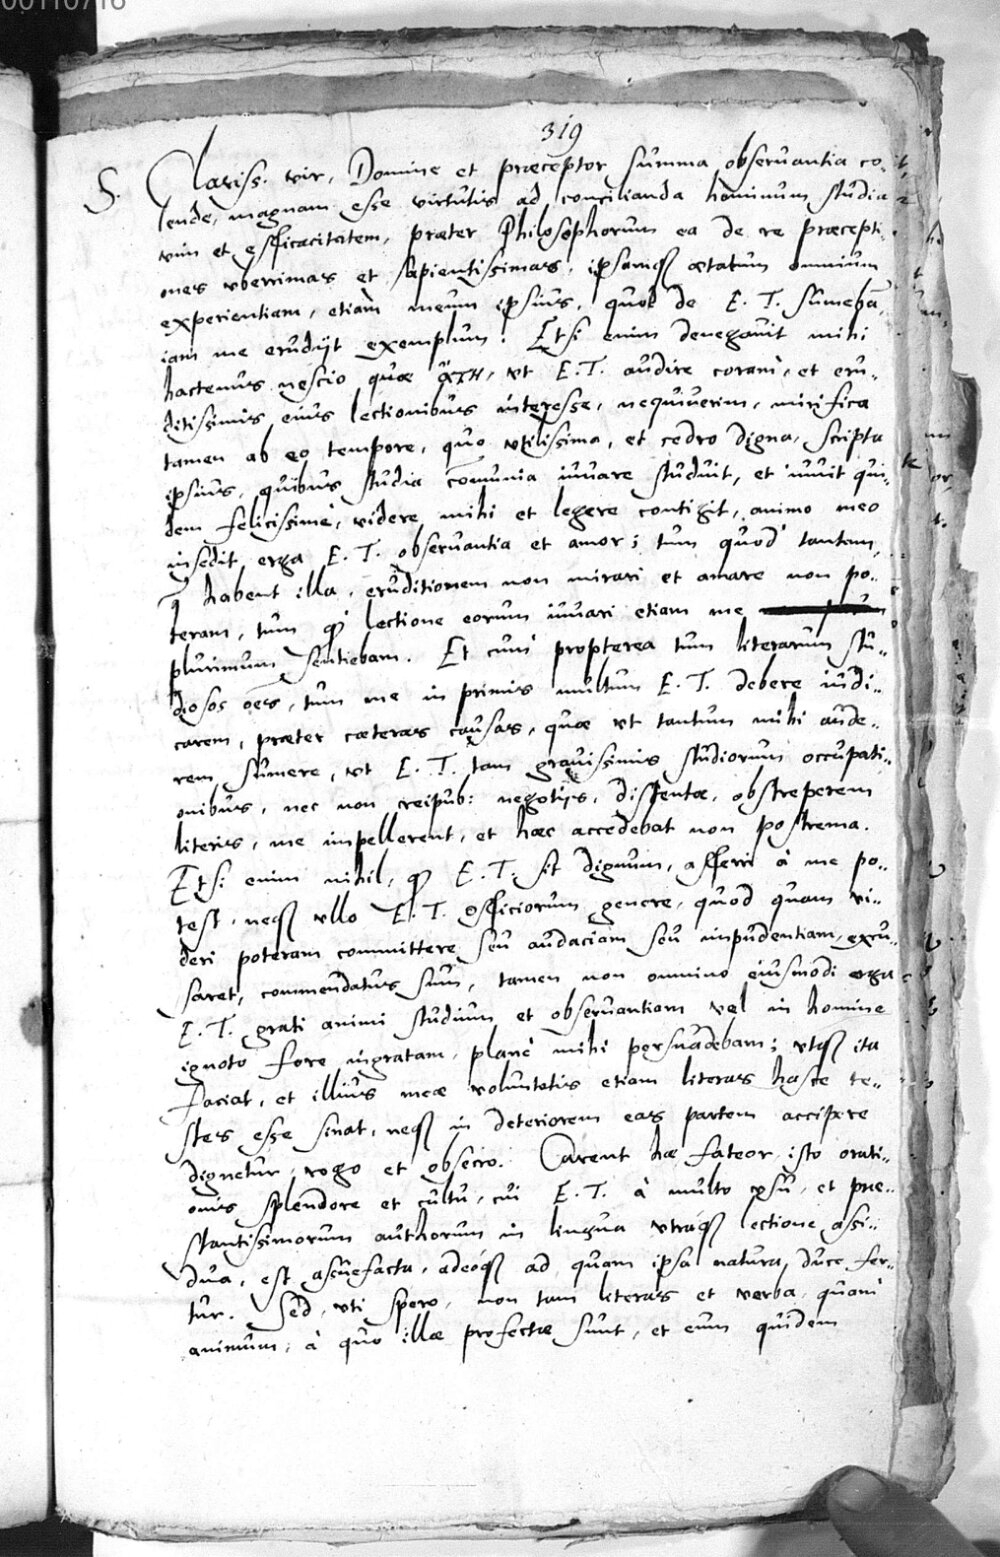 00110716
319
S. Clariss. vir, Domine et præceptor summa obseruantia co-
lende, magnam esse virtutis ad concilianda hominum studia
vim et efficacitatem, præter Philosophorum ea de re præcepti-
ones vberrimas et sapientissimas, ipsamq; ætatum omnium
experientiam, etiam meum ipsius, quod de E. T. sumebā,
iam me erudijt exemplum: Etsi enim denegauit mihi
hactenus nescio quæ ἄτη, vt E. T. audire coram, et eru-
ditissimis eius lectionibus interesse, nequiuerim, mirifica
tamen ab eo tempore, quo vtilissima, et cedro digna, scripta
ipsius, quibus studia com̄unia iuuare studuit, et iuuit qui-
dem felicissimè, videre mihi et legere contigit, animo meo
insedit erga E. T. obseruantia et amor; tum quod tantam,
q̄ habent illa, eruditionem non mirari et amare non po-
teram, tum qꝫ lectione eorum iuuari etiam me
plurimum sentiebam. Et cum propterea tum literarum stu-
diosos oēs, tum me in primis multum E. T. debere iudi-
carem, præter cæteras causas, quæ vt tantum mihi aude-
rem sumere, vt E. T. tam grauissimis studiorum occupati-
onibus, nec non reipub: negotijs, distentæ, obstreperem
literis, me impellerent, et hæc accedebat non postrema.
Etsi enim nihil, qꝫ E. T. sit dignum, afferri à me po-
test, neq; vllo E. T. officiorum genere, quod quam vi-
deri poteram committere seu audaciam seu impudentiam, excu-
saret, commendatus sum, tamen non omnino eiusmodi erga
E. T. grati animi studium et obseruantiam vel in homine
ignoto fore ingratam, planè mihi persuadebam; vtq; ita
faciat, et illius meæ voluntatis etiam literas hasce te-
stes esse sinat, neq; in deteriorem eas partem accipere
dignetur, rogo et obsecro. Carent hæ fateor isto orati-
onis splendore et cultu, cui E. T. à multo vsu, et præ-
stantissimorum authorum in lingua vtráq; lectione assi-
dua, est assuefacta, adeóq; ad quam ipsa natura duce fer-
tur. Sed, vti spero, non tam literas et verba, quàm
animum, à quo illæ profectæ sunt, et eum quidem